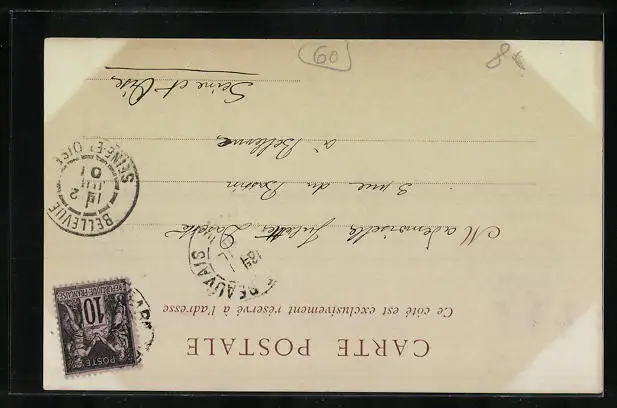 CARTE POSTALE
Ce côté est exclusivement réservé à l'adresse
Mademoiselle Juliette
3 rue du Bassin
à Bellevue
Seine et Oise
BEAUVAIS
BELLEVUE
SEINE-ET-OISE
2E
19
JUIL
01
POSTES
10
REPUBLIQUE FRANÇAISE
60
8